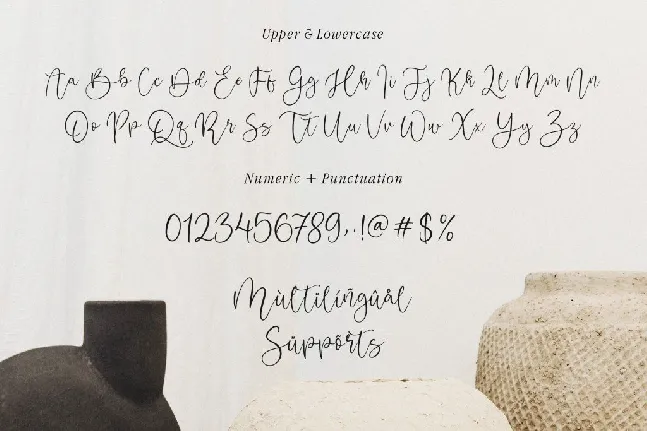 Upper & Lowercase
Aa Bb Cc Dd Ee Ff Gg Hh Ii Jj Kk Ll Mm Nn
Oo Pp Qq Rr Ss Tt Uu Vv Ww Xx Yy Zz
Numeric + Punctuation
0123456789,.!@#$%
Mùltilíñgûàl
Süppôřts